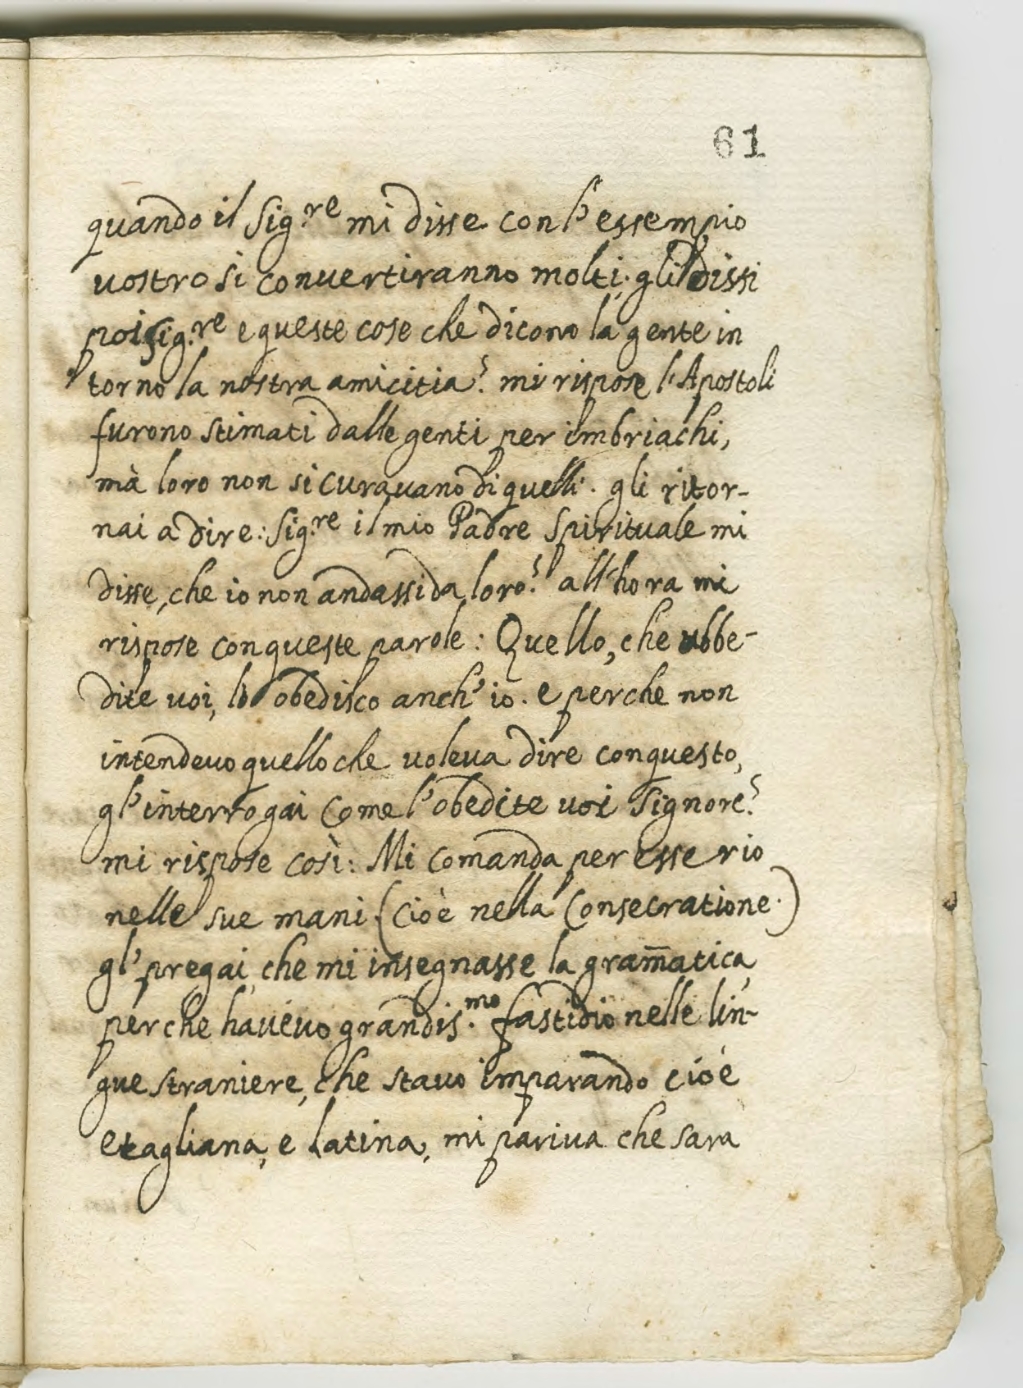 61
quando il Sig.re mi disse con l'essempio
vostro si convertiranno molti. gli dissi
poi Sig.re e queste cose che dicono la gente in
torno la nostra amicitia? mi rispose l'Apostoli
furono stimati dalle genti per imbriachi,
mà loro non si curavano di quelli. gli ritor-
nai a dire: Sig.re il mio Padre Spirituale mi
disse, che io non andassi da loro? all'hora mi
rispose con queste parole: Quello, che ubbe-
dite voi, lo obedisco anch'io. e perche non
intendevo quello che voleva dire con questo,
gl'interrogai Come l'obedite voi Signore?
mi rispose così: Mi comanda per esse rio
nelle sue mani (cioè nella Consecratione.)
gl'pregai, che mi insegnasse la gram̄atica,
perche havevo grandis.mo fastidio nelle lin-
gue straniere, che stavo imparando cioè
etagliana, e latina, mi pariva che sara